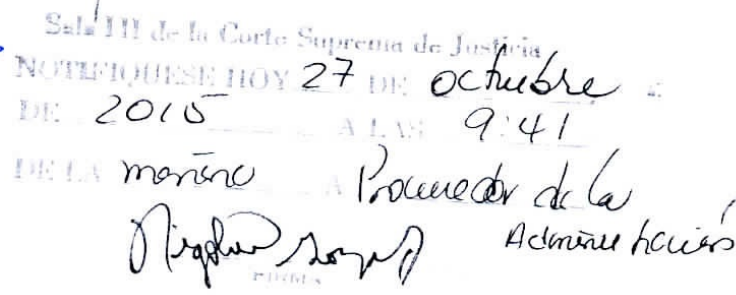 Sala III de la Corte Suprema de Justicia
NOTIFIQUESE HOY 27 DE octubre
DE 2015 A LAS 9:41
DE LA mañana A Procurador de la
Administración
FIRMA